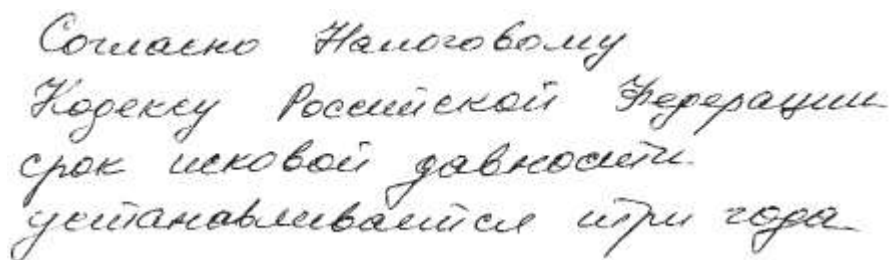 Согласно Налоговому
Кодексу Российской Федерации
срок исковой давности
устанавливается три года